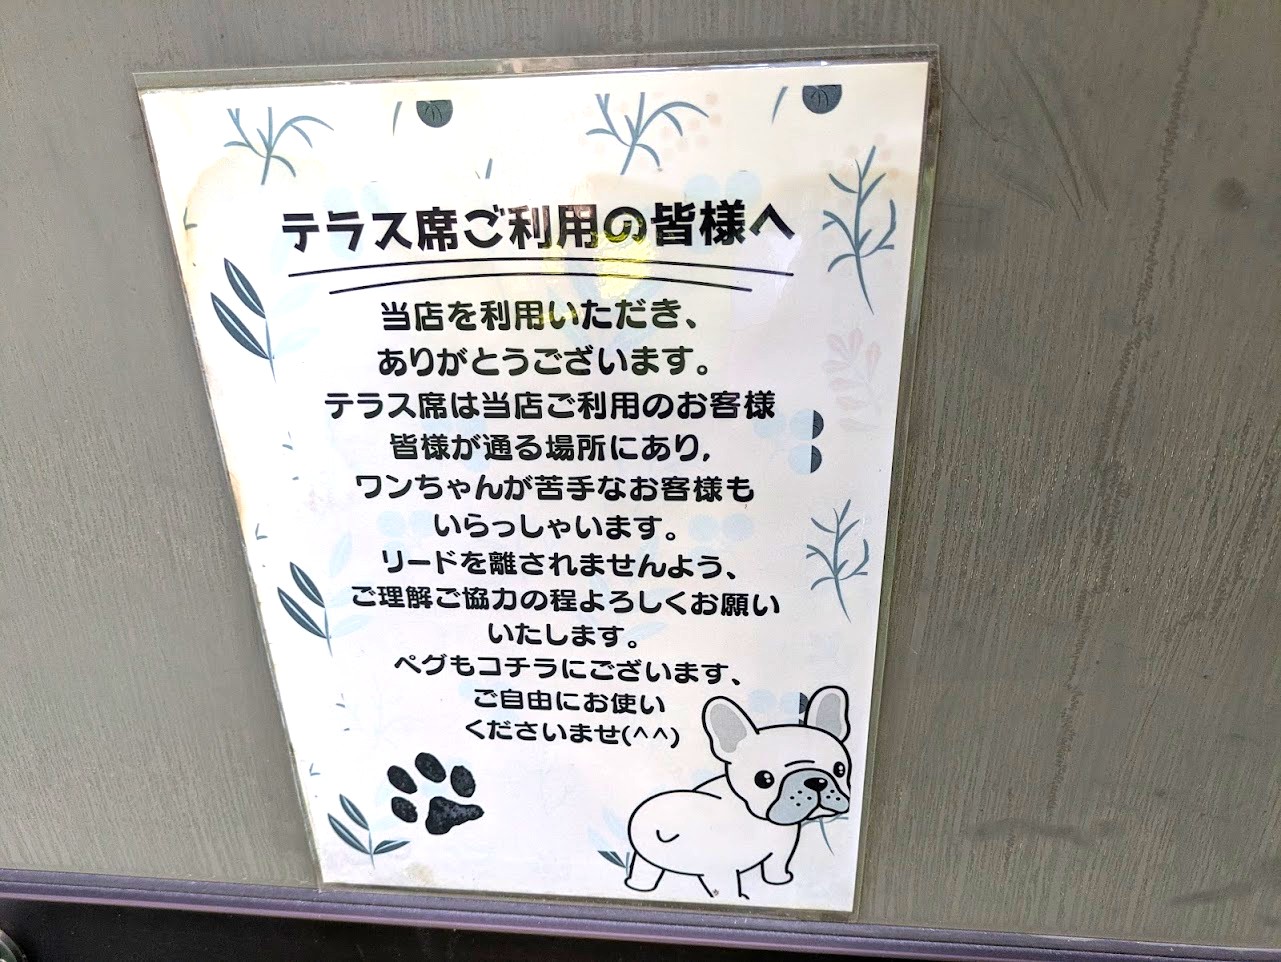 テラス席ご利用の皆様へ
当店を利用いただき、
ありがとうございます。
テラス席は当店ご利用のお客様
皆様が通る場所にあり,
ワンちゃんが苦手なお客様も
いらっしゃいます。
リードを離されませんよう、
ご理解ご協力の程よろしくお願い
いたします。
ペグもコチラにございます、
ご自由にお使い
くださいませ(^^)